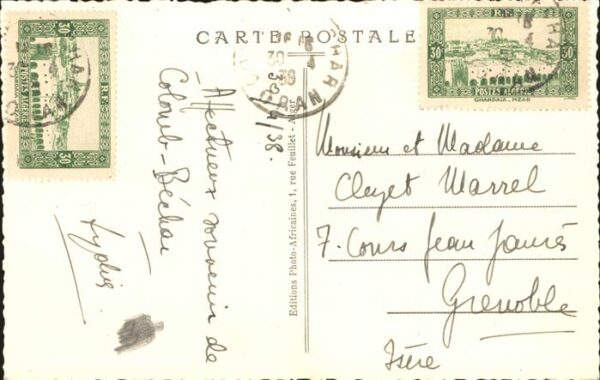 CARTE POSTALE
30/4/38.
Affectueux souvenir de
Colomb-Béchar
Lydie
Editions Photo-Africaines, 1, rue Feuillet - Alger
30 R.F. 30
POSTES ALGERIE
GHARDAIA-MZAB
30 R.F. 30
POSTES ALGERIE
ORAN
Monsieur et Madame
Cleyet Marrel
7. Cours Jean Jaurès
Grenoble
Isère